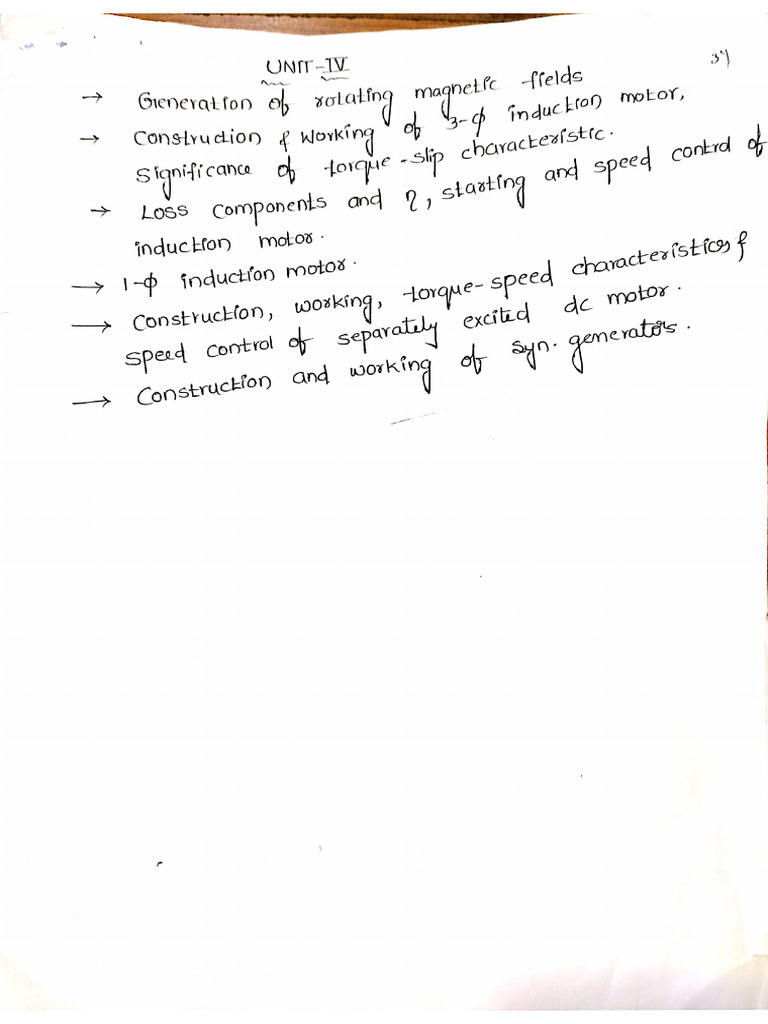 UNIT-IV
34
→ Generation of rotating magnetic fields
→ Construction & Working of 3-φ induction motor,
Significance of torque-slip characteristic.
→ Loss Components and η, starting and speed control of
induction motor.
→ 1-φ induction motor.
→ Construction, working, torque-speed characteristics &
speed control of separately excited dc motor.
→ Construction and working of syn. generators.